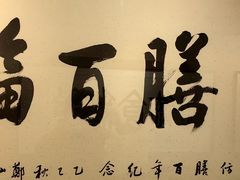 膳百
仿膳百年紀念 乙巳秋 鄭